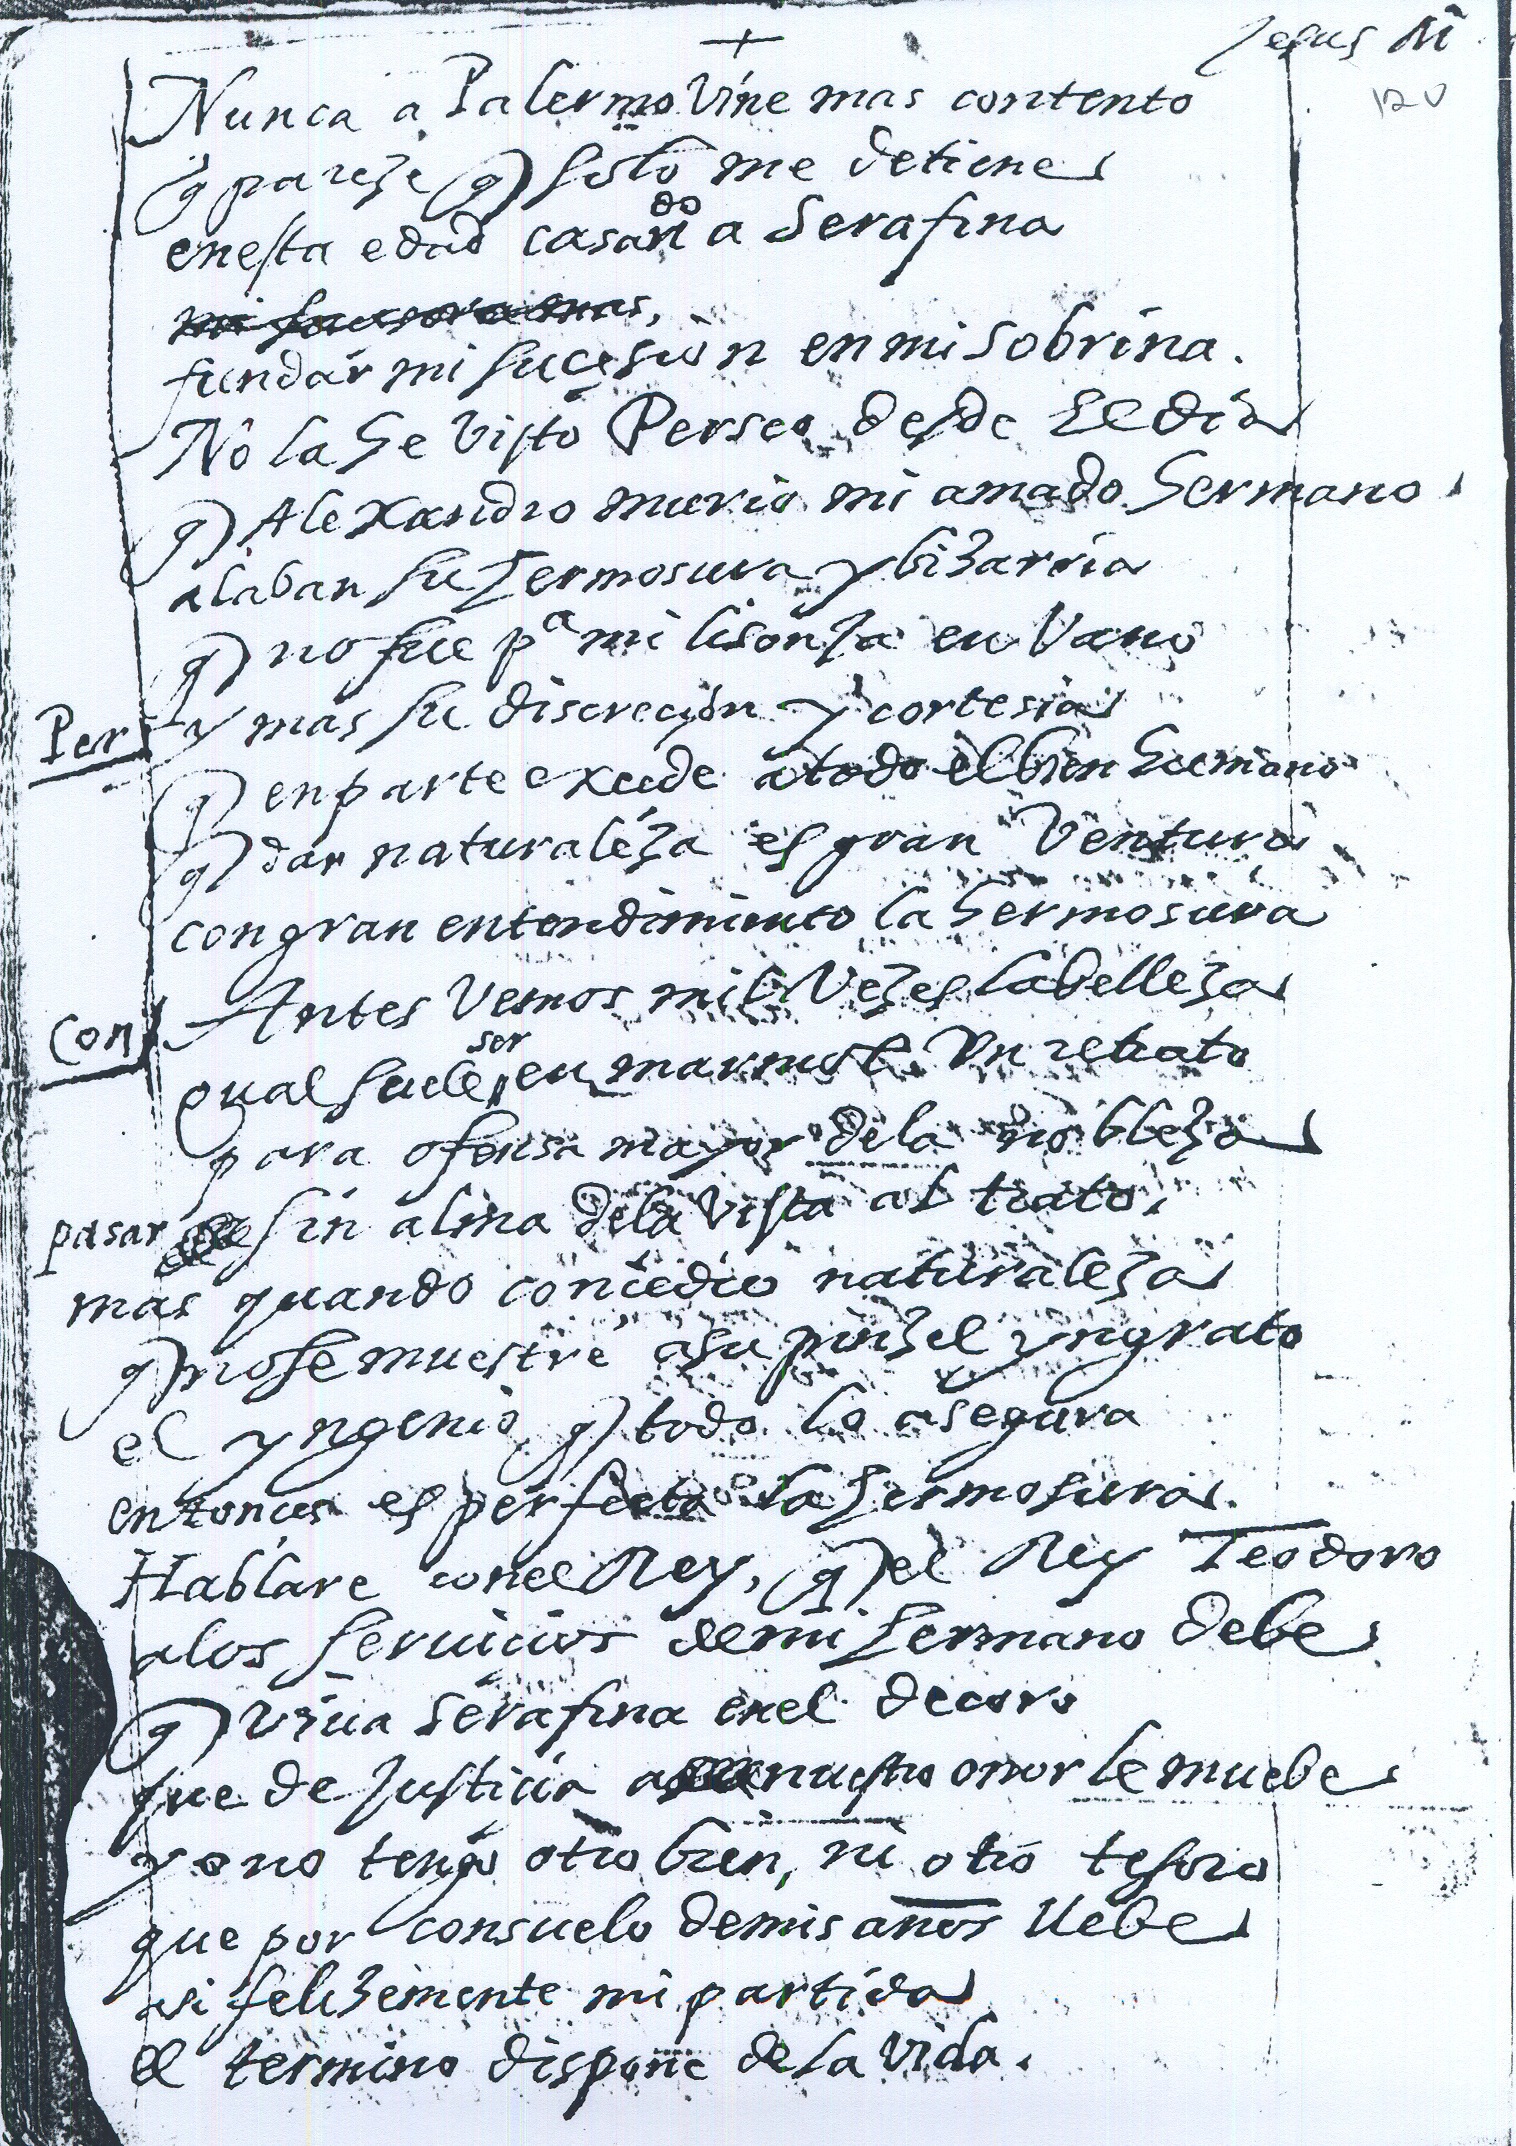 +
Jesus M
120
Nunca a Palermo vine mas contento
q pareze q solo me detiene
enesta edad casando a Serafina
fundar mi sucesion en mi sobrina.
No la he visto Perseo desde el dia
q Alexandro murio mi amado hermano
alaban su hermosura y bizarria
q no fue pa mi lisonja en vano
Per y mas su discreçion y cortesia
q en parte excede a todo el bien humano
q dar naturaleza es gran ventura
con gran entendimiento la hermosura
Con Antes vemos mil vezes la belleza
qual suele ser en marmol un retrato
para ofensa mayor de la nobleza
pasar sin alma de la vista al trato,
mas quando concedio naturaleza
q no se muestre a su pinzel yngrato
el yngenio q todo lo asegura
entonces es perfecta la hermosura.
Hablare con el Rey, q el Rey Teodoro
a los seruicios de mi hermano debe
q viua Serafina en el decoro
que de justicia a nuestro onor le muebe
yo no tengo otro bien, ni otro tesoro
que por consuelo de mis años llebe
asi felizemente mi partida
el termino dispone de la vida.